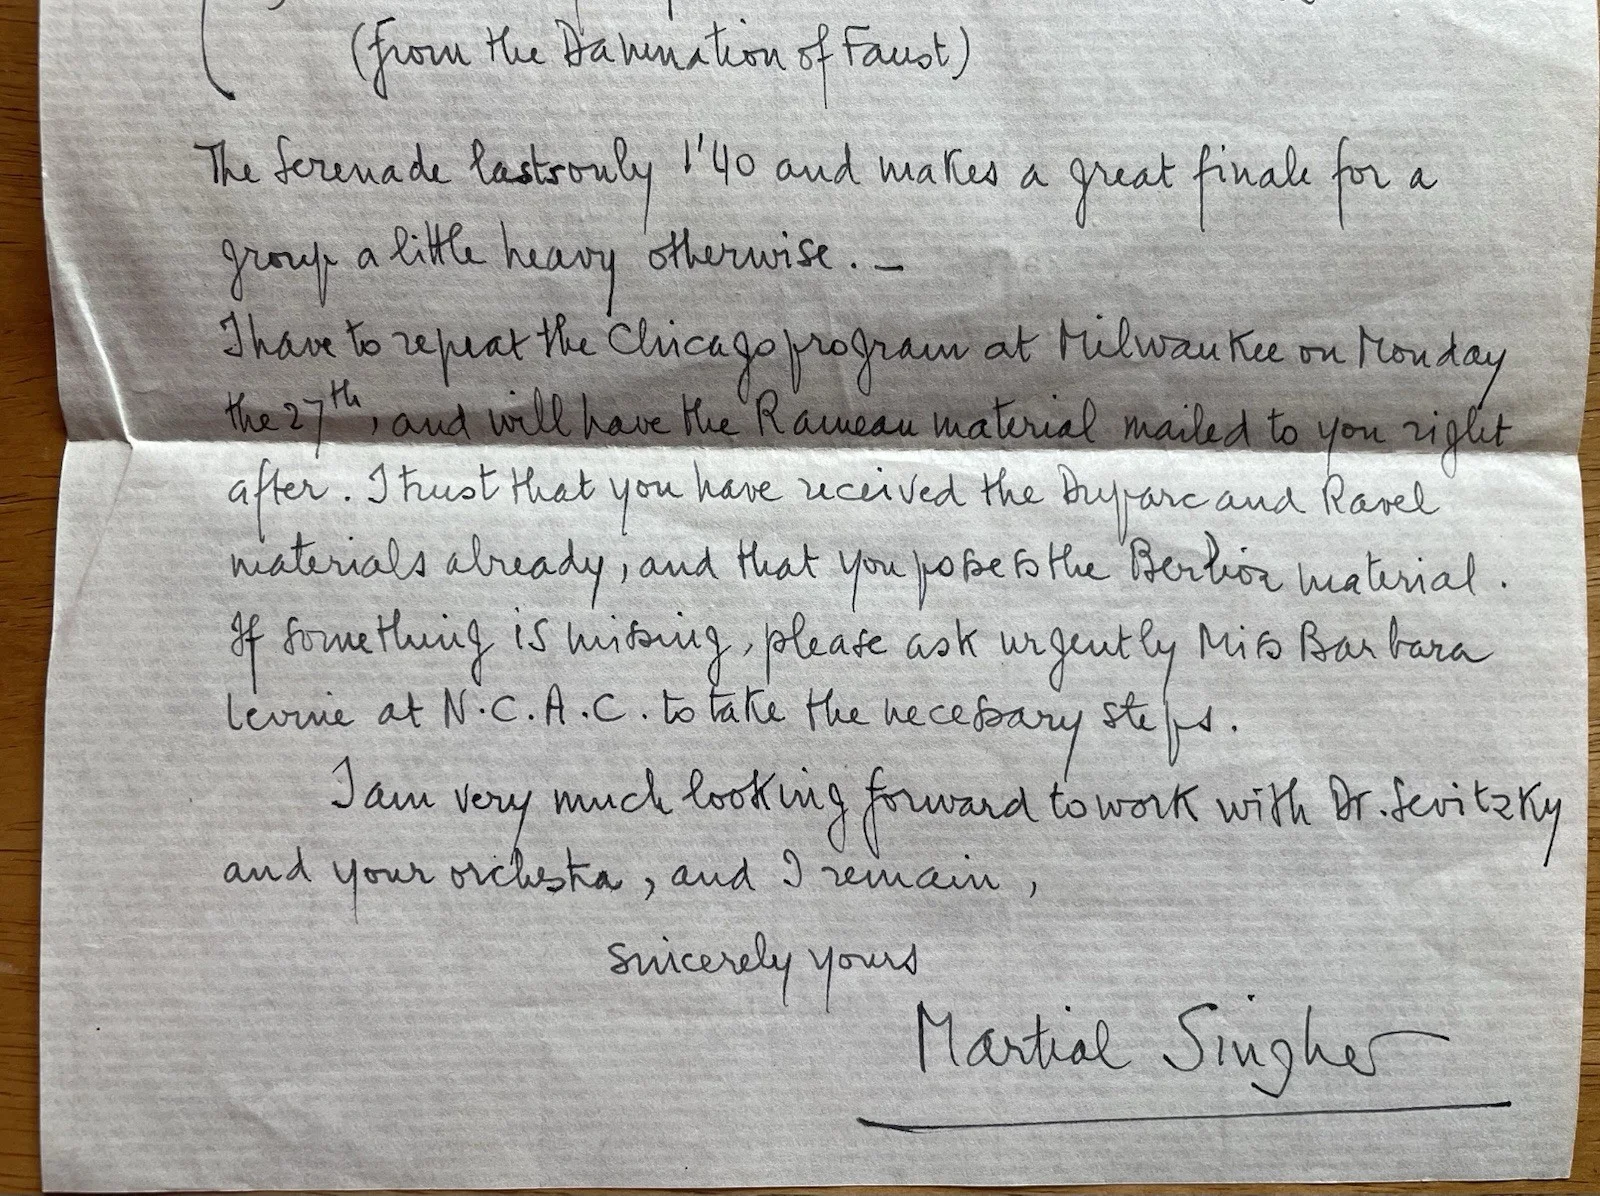 (from the Damnation of Faust)
The Serenade lasts only 1'40 and makes a great finale for a
group a little heavy otherwise. _
I have to repeat the Chicago program at Milwaukee on Monday
the 27th, and will have the Rameau material mailed to you right
after. I trust that you have received the Duparc and Ravel
materials already, and that you posess the Berlioz material.
If something is missing, please ask urgently Miss Barbara
Levine at N.C.A.C. to take the necessary steps.
I am very much looking forward to work with Dr. Sevitzky
and your orchestra, and I remain,
Sincerely yours
Martial Singher